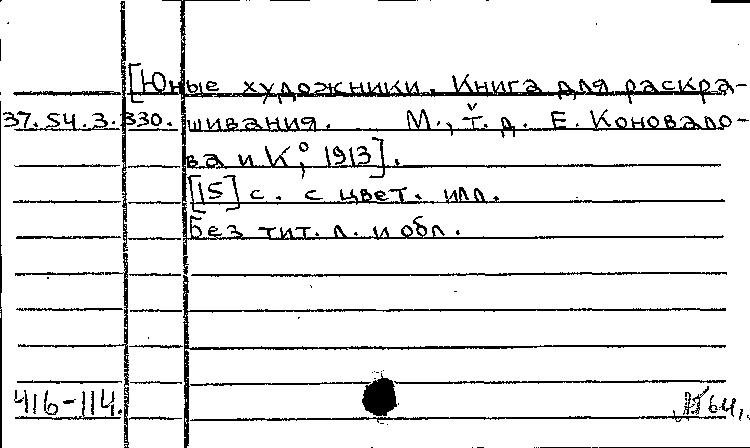 [Юные художники. Книга для раскра-
37.54.3.330. шивания. М., т. д. Е. Коновало-
ва и К°, 1913].
[15] с. с цвет. илл.
Без тит. л. и обл.
416-114.